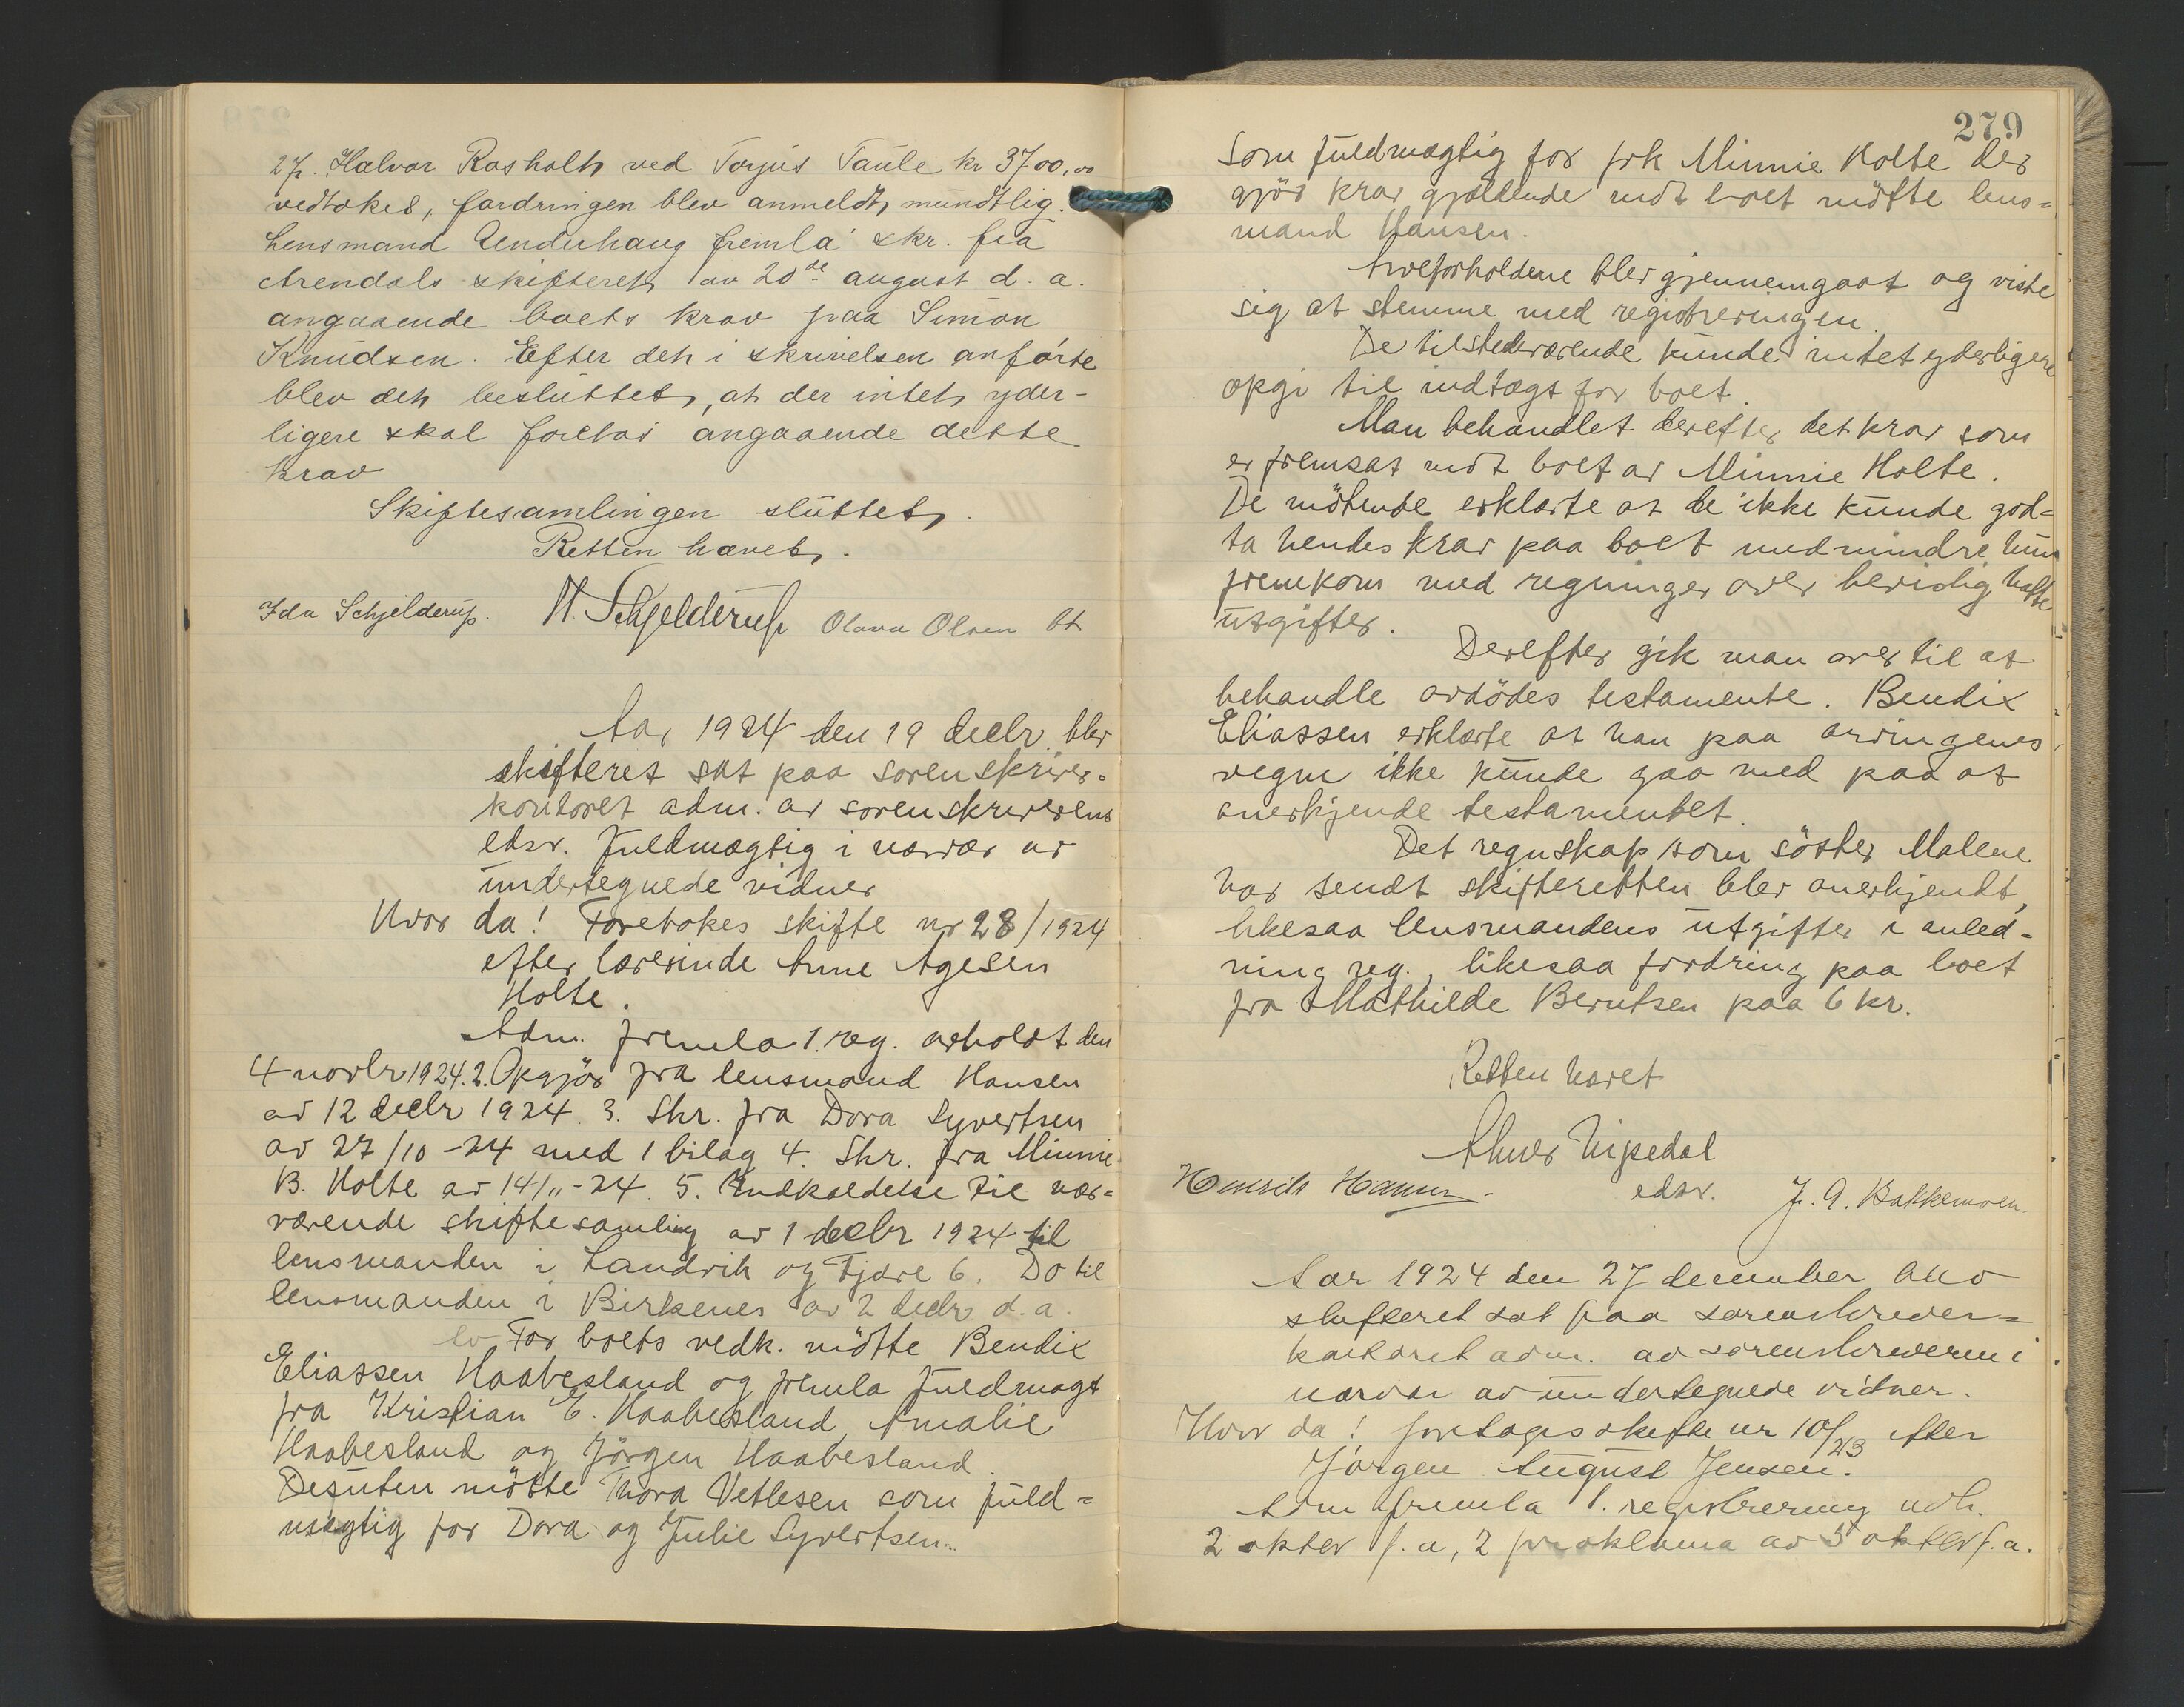 27. Halvor Rasholt ved Torjus Taule kr 3700,00
vedtokes, fordringen blev anmeldt mundtlig.
Lensmand Underhaug fremla skr. fra
Arendals skifteret av 20de august d. a.
angaaende boets krav paa Simon
Knudsen. Efter det i skrivelsen anførte
blev det besluttet, at der intet yder-
ligere skal foretas angaaende dette
krav
Skiftesamlingen sluttet.
Retten hævet.
Ida Schjelderup. H. Schjelderup Olava Olsen
Aar 1924 den 19 decbr. blev
skifteret sat paa sorenskriver-
kontoret adm. av sorenskriverens
edsv. fuldmægtig i nærvær av
undertegnede vidner
Hvor da! Foretokes skifte nr 28/1924
efter lærerinde Anne Agesen
Holte.
Adm. fremla 1. reg. avholdt den
4 novbr 1924. 2. Opgjör fra lensmand Hansen
av 12 decbr 1924. 3. Skr. fra Dora Syvertsen
av 27/10-24 med 1 bilag 4. Skr. fra Minnie
B. Holte av 14/11-24. 5. Indkaldelse til nær-
værende skiftesamling av 1 decbr 1924 til
lensmanden i Landvik og Fjære 6. Do til
lensmanden i Birkenes av 2 decbr d. a.
For boets vedk. mötte Bendix
Eliassen Haabesland og fremla fuldmagt
fra Kristian E. Haabesland, Amalie
Haabesland og Jörgen Haabesland.
Desuten mötte Thora Vetlesen som fuld-
mægtig for Dora og Julie Syvertsen.
279
Som fuldmægtig for frk Minnie Holte der
gjör krav gjældende mot boet mötte lens-
mand Hansen.
Arveforholdene blev gjennemgaat og viste
sig at stemme med registreringen.
De tilstedeværende kunde intet yderligere
opgi til indtægt for boet.
Man behandlet derefter det krav som
er fremsat mot boet av Minnie Holte.
De mötende erklærte at de ikke kunde god-
ta hendes krav paa boet medmindre hun
fremkom med regninger over bevislig hafte
utgifter.
Derefter gik man over til at
behandle avdödes testamente. Bendix
Eliassen erklærte at han paa arvingenes
vegne ikke kunde gaa med paa at
anerkjende testamentet.
Det regnskap som söster Malene
har sendt skifteretten blev anerkjendt,
likesaa lensmandens utgifter i anled-
ning reg., likesaa fordring paa boet
fra Mathilde Berntsen paa 6 kr.
Retten hævet
Abner Uipedal
Henrik Hansen edsv. J. A. Bakkemoen
Aar 1924 den 27 december blev
skifteret sat paa sorenskriver-
kontoret adm. av sorenskriveren i
nærvær av undertegnede vidner.
Hvor da! foretages skifte nr 10/23 efter
Jörgen August Jensen.
Adm fremla 1. registrering avh.
2 oktbr f. a, 2 proklama av 5 oktbr f. a.